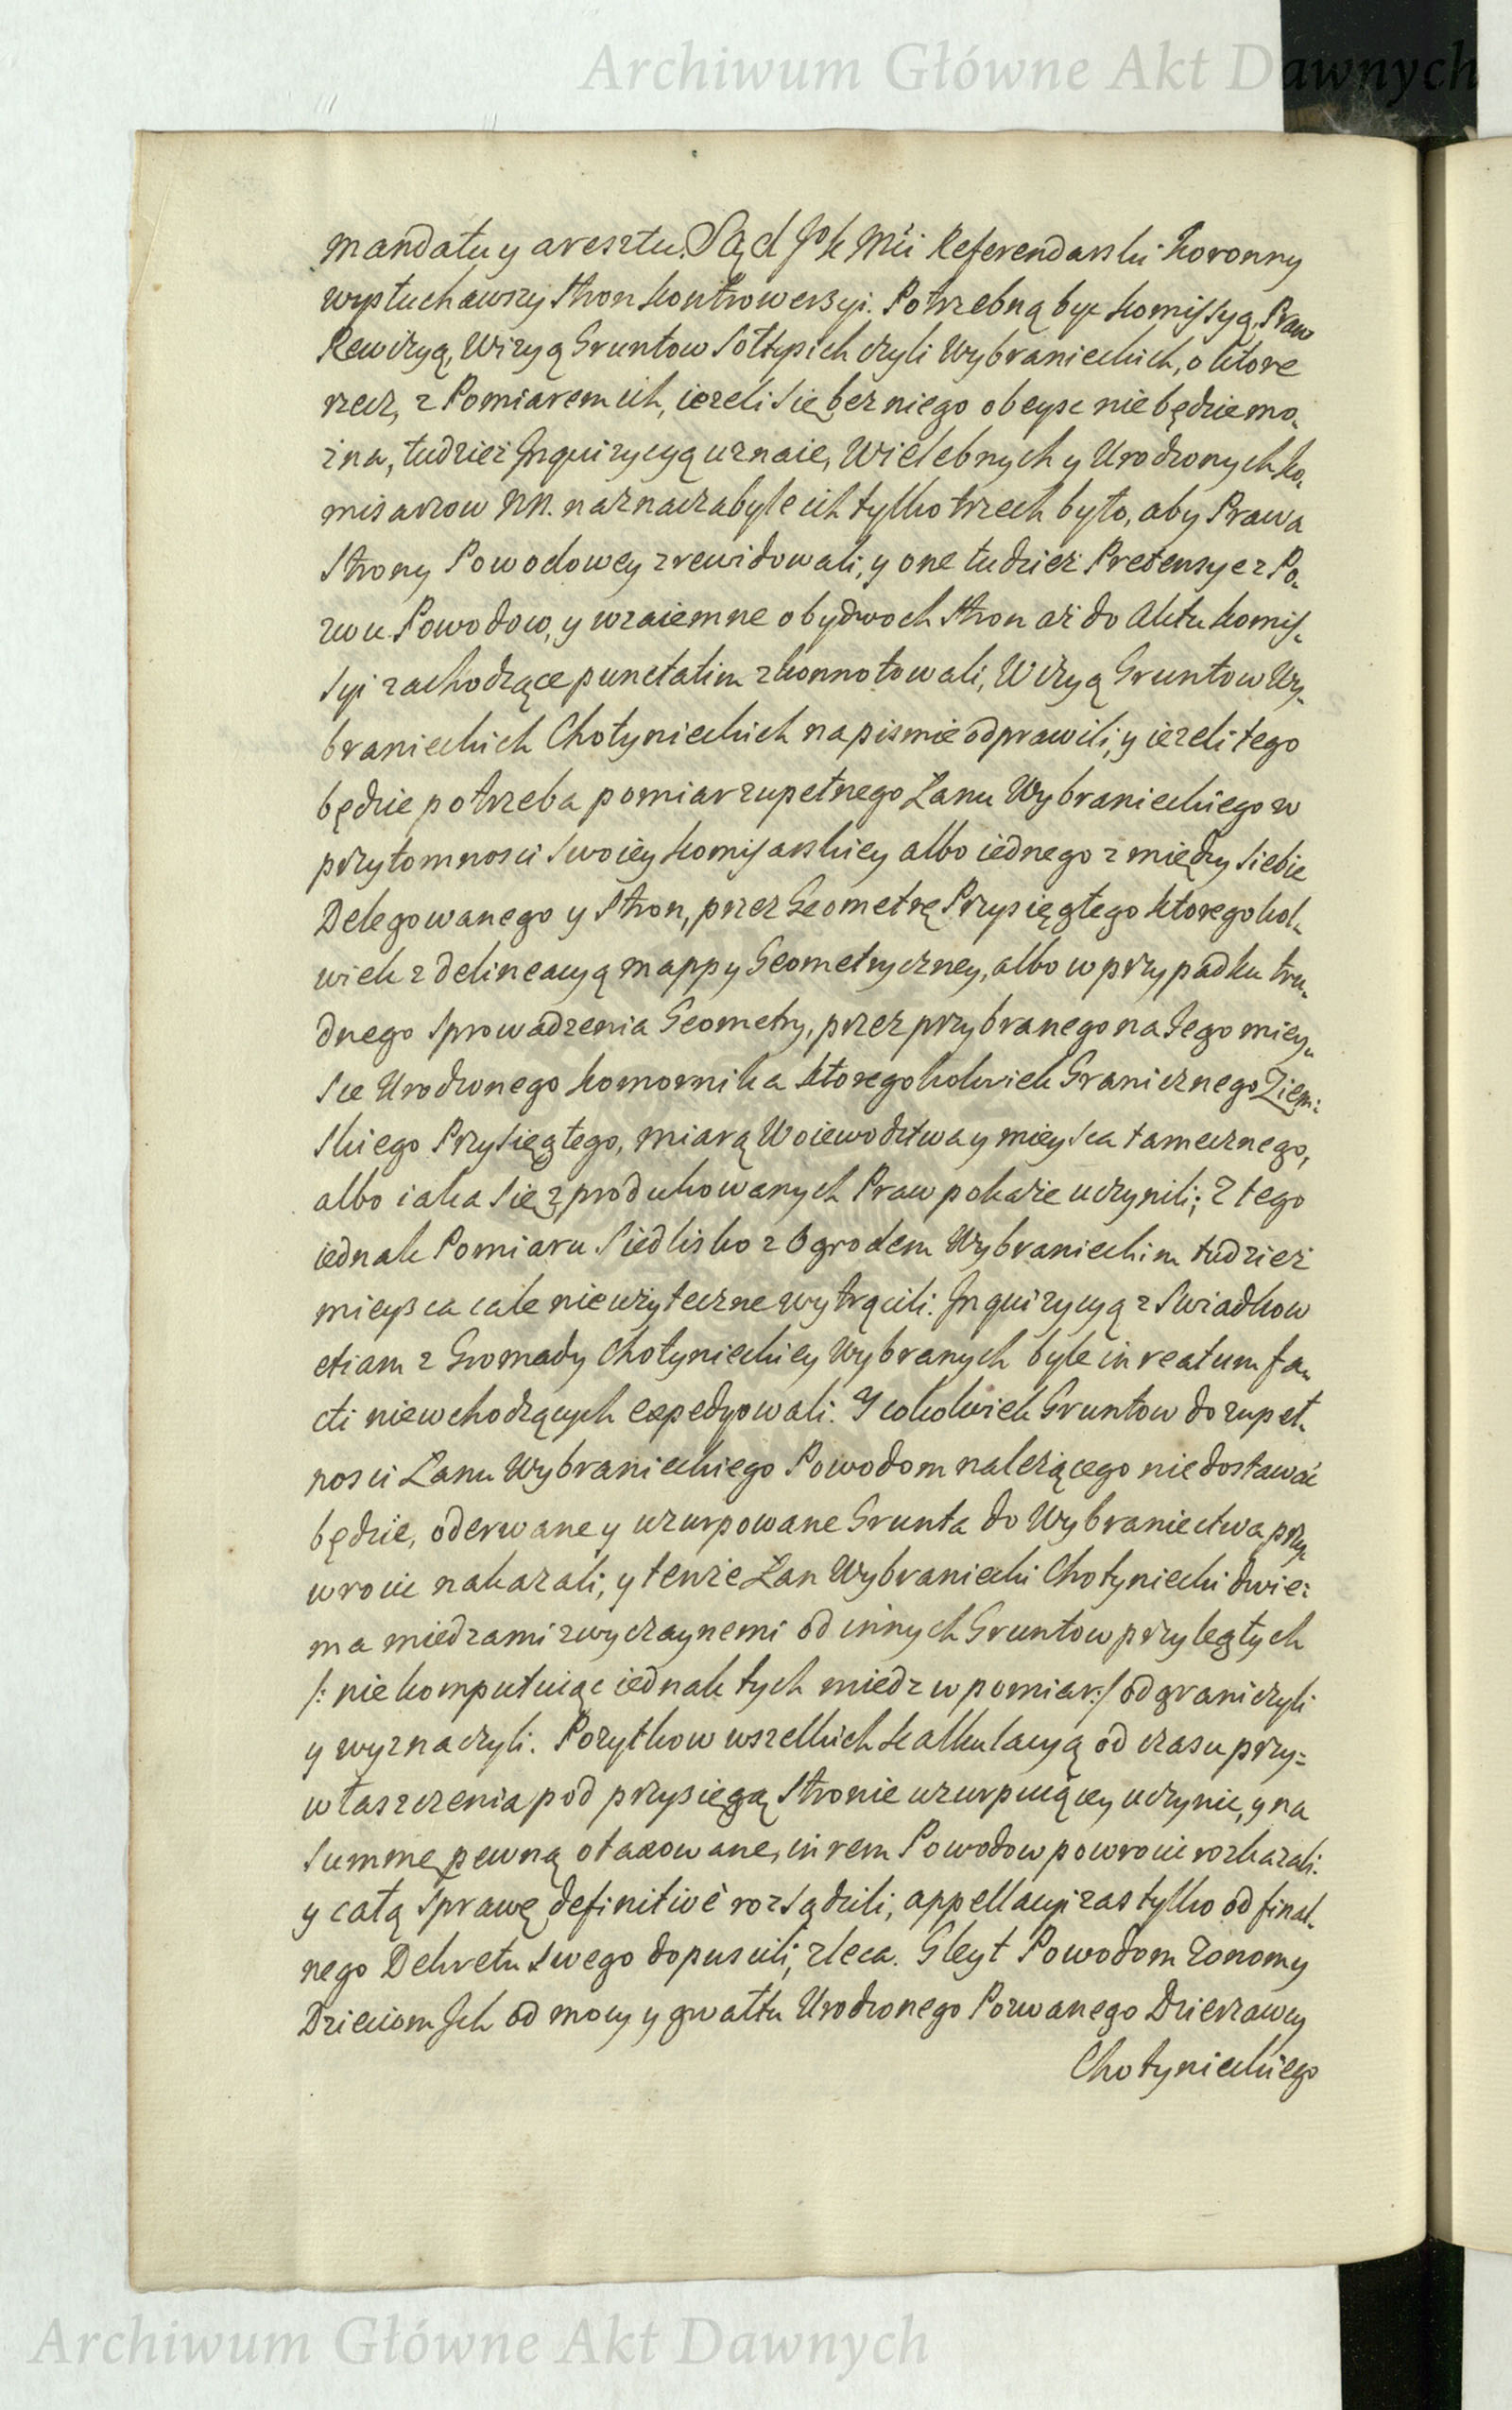 Archiwum Główne Akt Dawnych
mandatu y aresztu. Sąd JoK Mci Referendarski Koronny
wysłuchawszy stron kontrowersyi. Potrzebną być Komissyą, Praw
Rewizyą, Wizyą Gruntow Sołtysich czyli Wybranieckich, o ktore
rzecz, z Pomiarem ich, ieżeli się bez niego obeysc nie będzie mo-
żna, tudzież Inquizycyą uznaie, Wielebnych y Urodzonych Ko-
misarzow NN. naznacza byle ich tylko trzech było, aby Prawa
strony Powodowey zrewidowali, y one tudzież Pretensye z Po-
zwu Powodow, y wzaiemne obydwoch stron aż do Aktu Komis-
syi zachodzące punctatim zkonnotowali, Wizyą Gruntow Wy-
branieckich Chotynieckich na pismie odprawili, y ieżeli tego
będzie potrzeba pomiar zupełnego Łanu Wybranieckiego w
przytomnosci swoiey Komisarskiey albo iednego z między siebie
Delegowanego y stron, przez Geometrę Przysięgłego ktoregokol-
wiek z delineacyą mappy Geometryczney, albo w przypadku tru-
dnego sprowadzenia Geometry, przez przybranego na tego miey-
sce Urodzonego Komornika ktoregokolwiek Granicznego Ziem-
skiego Przysięgłego, miarą Woiewodztwa y mieysca tamecznego,
albo iaka się z produkowanych Praw pokaże uczynili; z tego
iednak Pomiaru Siedlisko z Ogrodem Wybranieckim tudzież
mieysca cale nieużyteczne wytrącili. Inquizycyą z Swiadkow
etiam z Gromady Chotynieckiey Wybranych byle in reatum fa-
cti niewchodzących expedyowali. Y cokolwiek Gruntow do zupeł-
nosci Łanu Wybranieckiego Powodom należącego niedostawać
będzie, oderwane y uzurpowane Grunta do Wybraniectwa przy-
wrocic nakazali, y tenże Łan Wybraniecki Chotyniecki dwie-
ma miedzami zwyczaynemi od innych Gruntow przyległych
/: nie komputuiąc iednak tych miedz w pomiar :/ odgraniczyli
y wyznaczyli. Pożytkow wszelkich kalkulacyą od czasu przy-
właszczenia pod przysięgą stronie uzurpuiącey uczynic, y na
summę pewną otaxowane, in rem Powodow powrocic rozkazali.
y całą sprawę definitivè rozsądzili, appellacyi zas tylko od final-
nego Dekretu swego dopuscili, zleca. Gleyt Powodom Żonom y
Dzieciom Ich od mocy y gwałtu Urodzonego Pozwanego Dzierzawcy
Chotynieckiego
Archiwum Główne Akt Dawnych